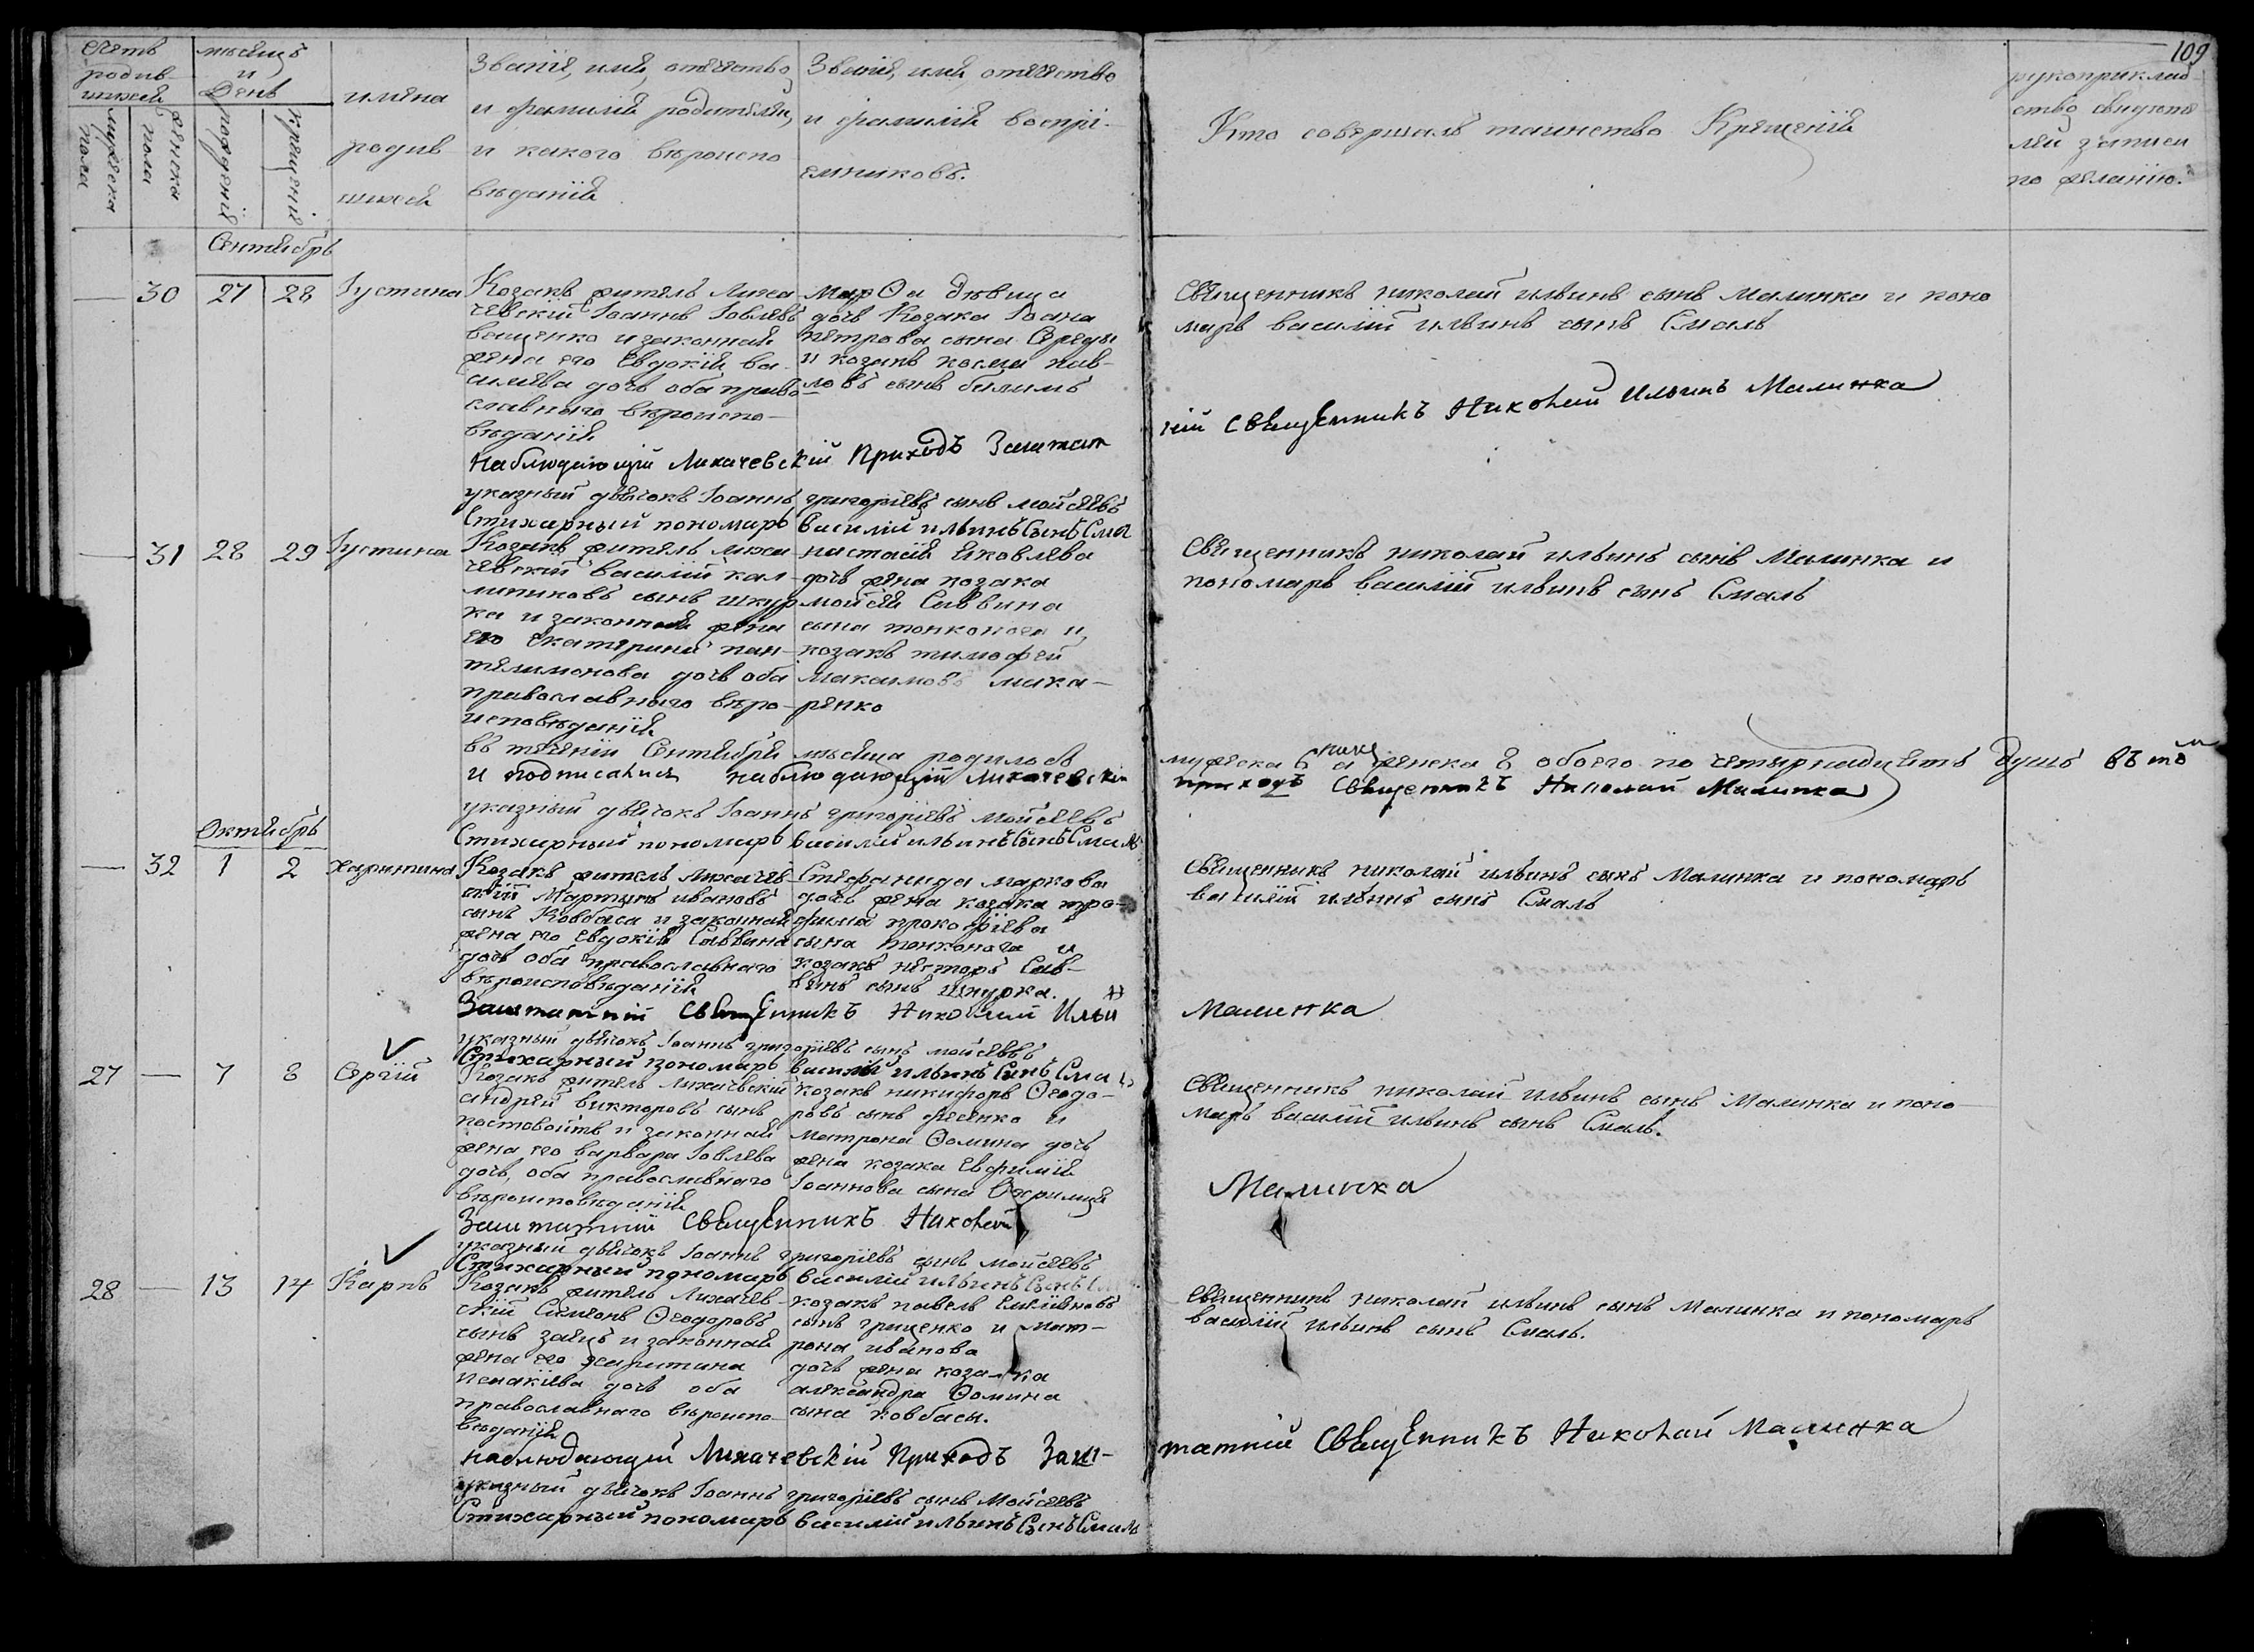 109
Счетъ родив-шихся
мѣсяцъ и день
имена родив шихся
Званіе, имя, отечество и фамилія родителей, и какого вѣроиспо вѣданія
Званіе, имя, отечество и фамилія воспрі-емниковъ.
Кто совершалъ таинство Крещенія
рукоприклад-ство свидѣте лей записи по желанію.
мужеска пола
женска пола
рожденія
крещенія
Сентябрь
— 30 27 28 Іустина
Козакъ житель Лиха
чевскій Іоаннъ Іовлевъ
ващенко и законная
жена его Евдокія ва-
силіева дочь оба право-
славнаго вѣроиспо-
вѣданія
Марѳа дѣвица
дочь Козака Іоана
петрова сына Середы
и козакъ косма пав-
ловъ сынъ билимъ
Священникъ николай ильинъ сынъ Малинка и поно
марь василій ильинъ сынъ Смаль
Наблюдающій Лихачевскій Приходъ Заштат
ній Священникъ Николай Ильинъ Малинка
указный дьячокъ Іоаннъ григоріевъ сынъ мойсеевъ
Стихарный пономарь василій ильинъ Сынъ Смал
— 31 28 29 Іустина
Козакъ житель лиха-
чевскій василій кал-
лениковъ сынъ шкур
ка и законная жена
его Екатерина пан-
телимонова дочь оба
православнаго вѣро-
исповѣданія
настасія Яковлева
дочь жена козака
мойсея Саввина
сына тонконога и
козакъ тимофей
Максимовъ мака-
ренко
Священникъ николай ильинъ сынъ Малинка и
пономарь василій ильинъ сынъ Смаль
въ теченіи Сентября мѣсяца родилось
мужеска 6 а женска 8 обоего по четырнадцять душъ въ то
и подписались наблюдающій Лихачевскій
приходъ Священникъ Николай Малинка
указный дьячокъ Іоаннъ григоріевъ мойсеевъ
Стихарный пономарь василій ильинъ Сынъ Смаль
Октябрь
— 32 1 2 харитина
Козакъ житель Лихачев-
скій Мартынъ ивановъ
сынъ Ковбаса и законная
жена его Евдокія Саввина
дочь оба православнаго
вѣроисповѣданія
Стефанида маркова
дочь жена козака тро-
фима прокофіева
сына тонконога и
козакъ несторъ Сав-
винъ сынъ Шкурка.
Священникъ николай ильинъ сынъ Малинка и пономарь
василій ильинъ сынъ Смаль
Заштатній Священникъ Николай Ильин
Малинка
указный дьячокъ Іоаннъ григоріевъ сынъ мойсеевъ
Стихарный пономарь василій ильинъ Сынъ Смаль
27 — 7 8 Сергій
Козакъ житель Лихачевскій
андрей викторовъ сынъ
постовойтъ и законная
жена его варвара Іовлева
дочь, оба православнаго
вѣроисповѣданія
козакъ никифоръ Ѳеодо-
ровъ сынъ фесенко и
матрона Ѳомина дочь
жена козака Евфимія
Іоаннова сына
Священникъ николай ильинъ сынъ Малинка и поно-
марь василій ильинъ сынъ Смаль.
Заштатній Священникъ Николай
Малинка
указный дьячокъ Іоаннъ григоріевъ сынъ мойсеевъ
Стихарный пономарь василій ильинъ Сынъ
28 — 13 14 Карпъ
Козакъ житель Лихачев-
скій Симеонъ Ѳеодоровъ
сынъ заяцъ и законная
жена его харитина
дочь оба
православнаго вѣроиспо-
вѣданія
козакъ павелъ
сынъ гриценко и мат-
рона иванова
дочь жена козака
александра Ѳомина
сына ковбасы.
Священникъ николай ильинъ сынъ Малинка и пономарь
василій ильинъ сынъ Смаль.
наблюдающій Лихачевскій Приходъ Зашт-
татній Священникъ Николай Малинка
указный дьячокъ Іоаннъ григоріевъ сынъ Мойсеевъ
Стихарный пономарь василій ильинъ Сынъ Смаль